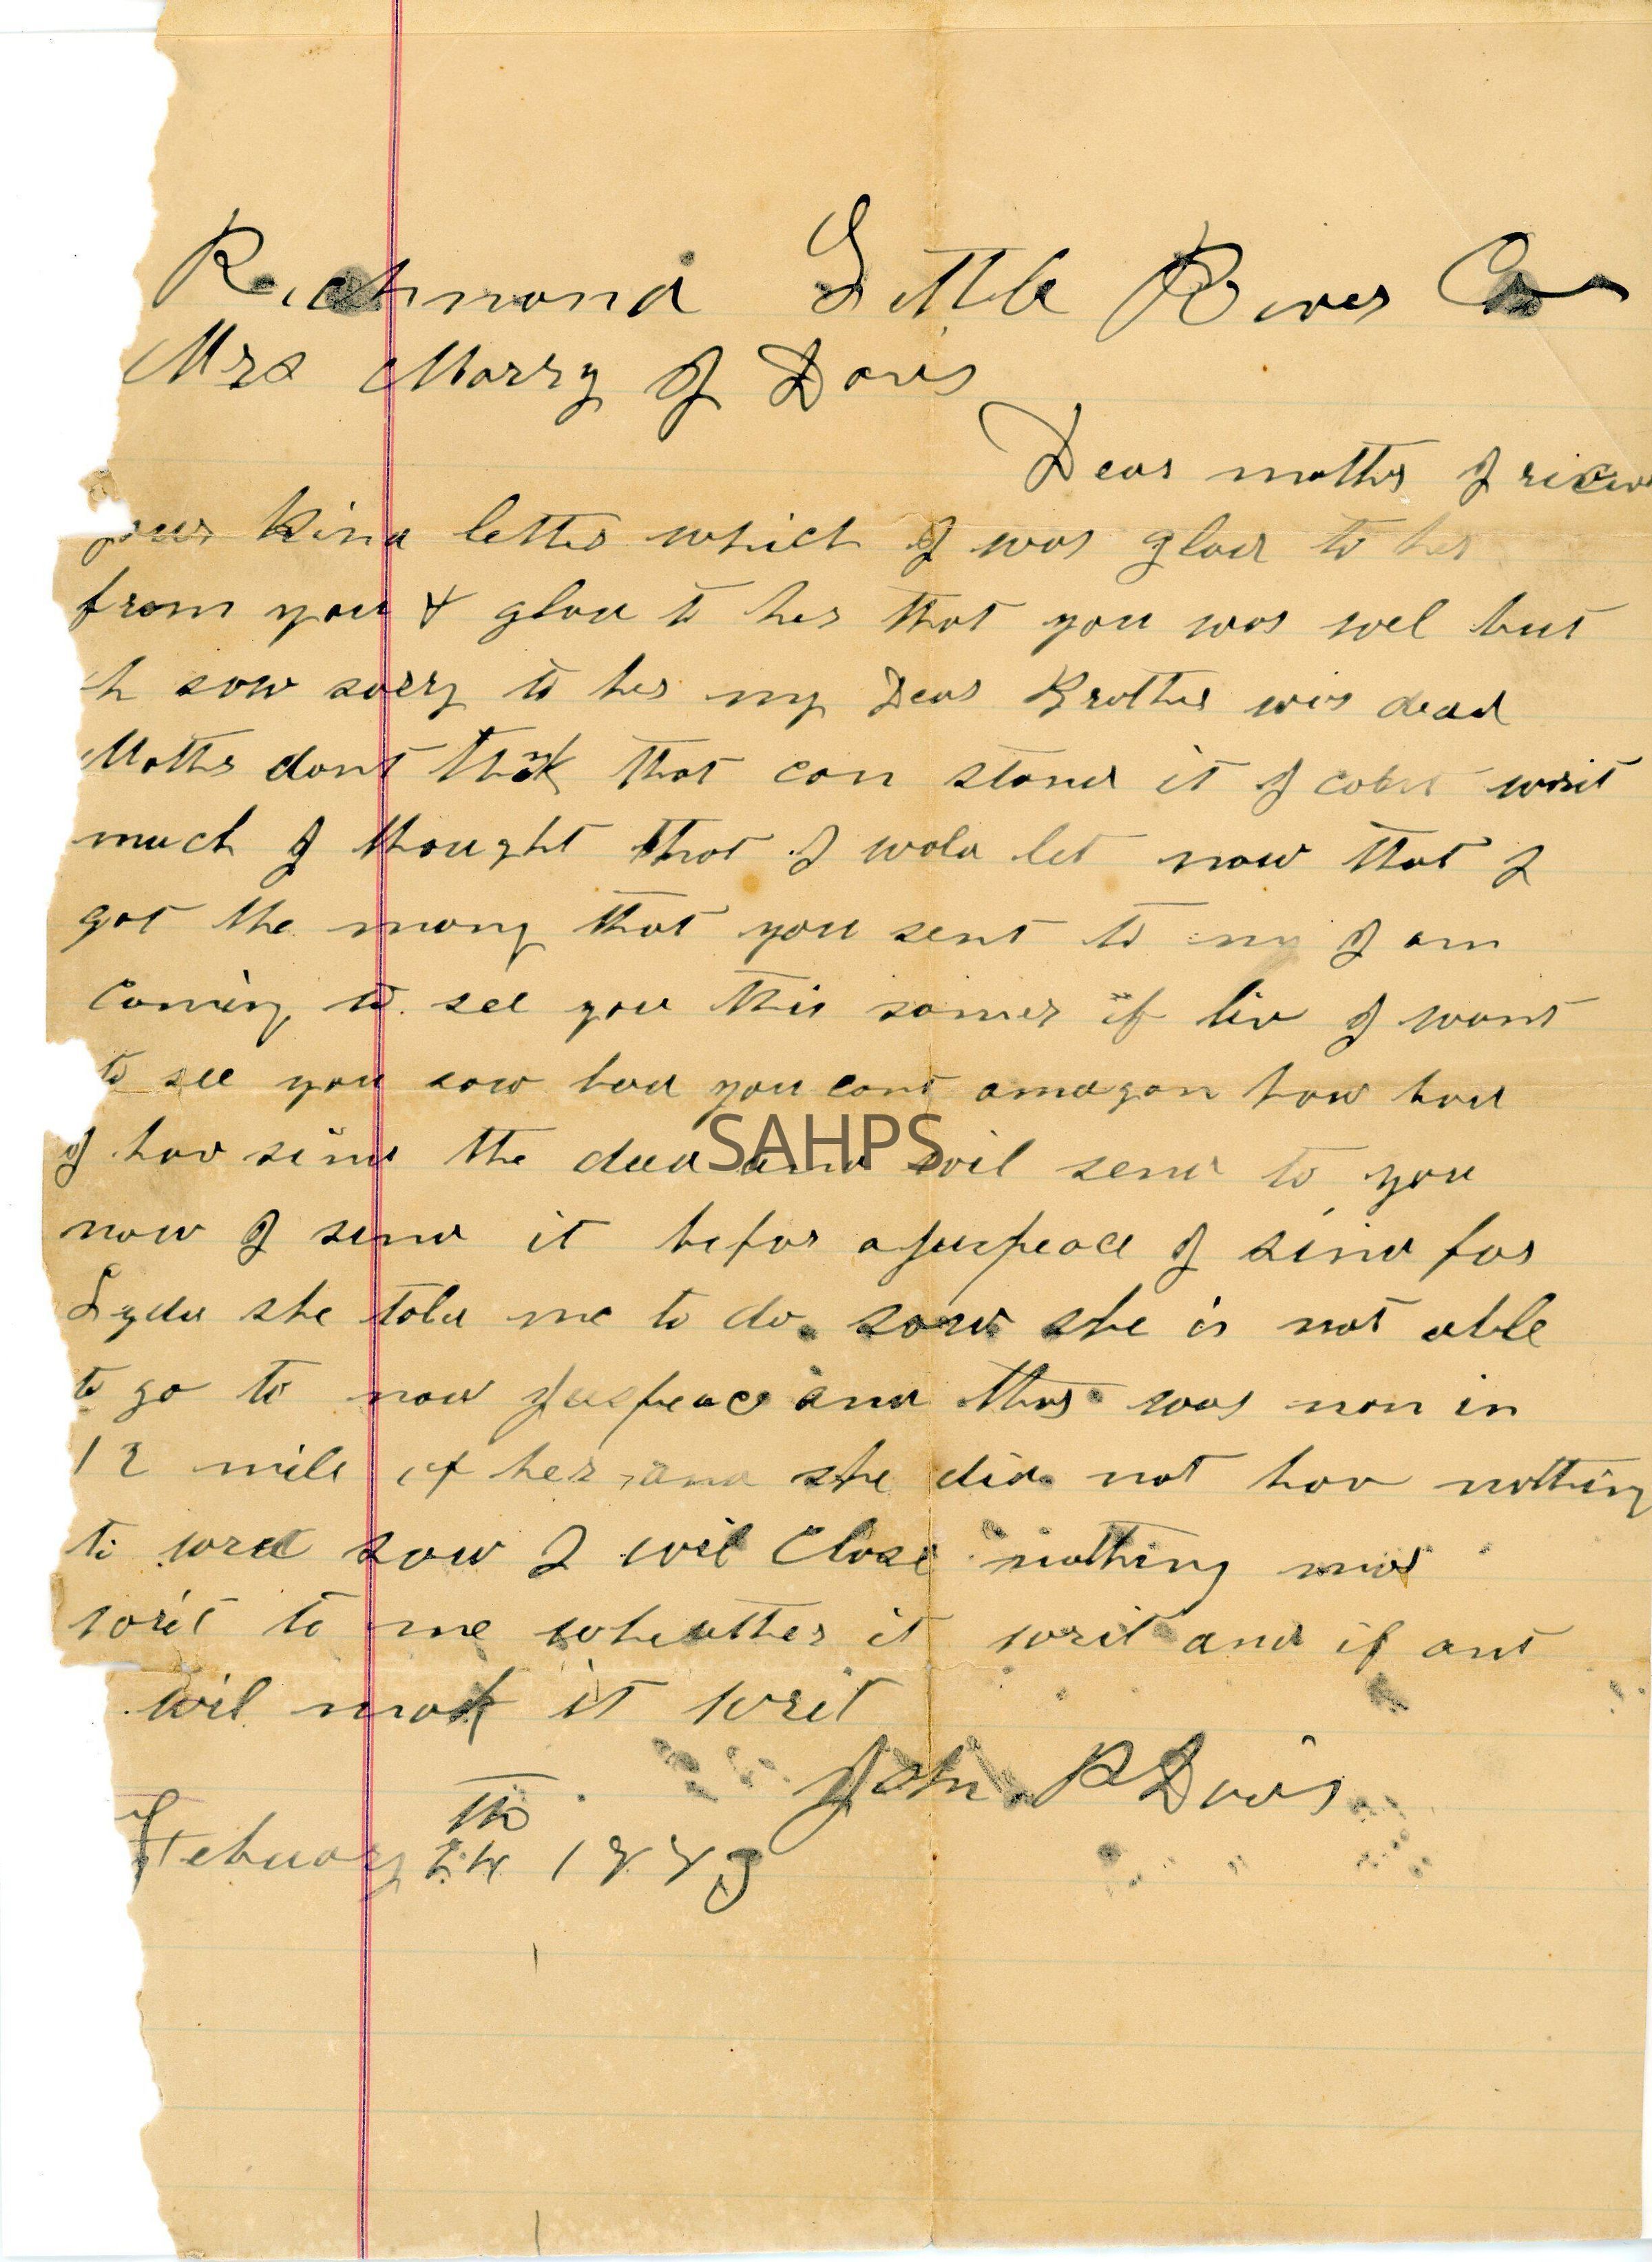 Richmond Little River Co
Mrs Marry J Davis
Dear mother I riceiv
your kind letter which I was glad to her
from you & glad to her that you was wel but
h sow sorry to her my Dear Brother wis dead
Mother dont think that can stand it I wrsit
much I thought that I wold let now that I
got the mony that you sent to my I am
coming to see you this somer if liv I want
to see you sow bad you cant amagan how bad
I hav sind the deed and wil send to you
SAHPS
now I send it befor a juspeace I sind for
Lyda she told me to do sow she is not able
to go to now juspeace and ther was non in
12 mile of her and she did not hav nothing
to wred sow I wil close nothing mor
writ to me wheather it writ and if ant
wil mak it writ
John P Davis
th
Febuary 24 1889